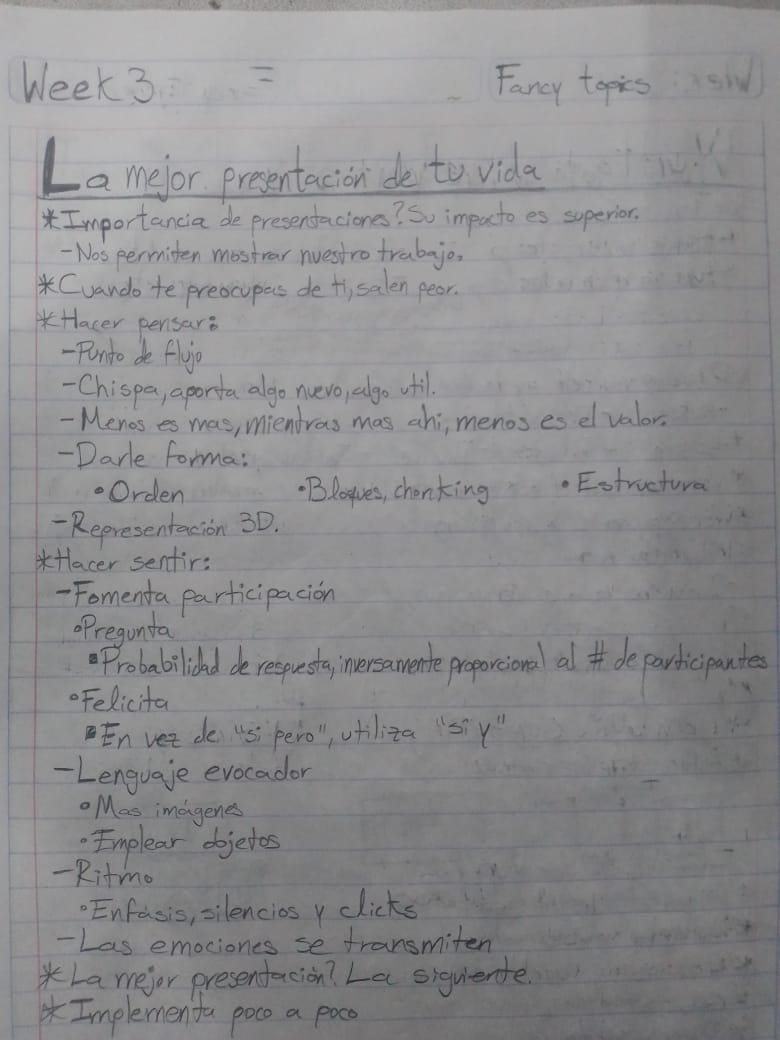 Week 3 = Fancy topics
La mejor presentación de tu vida
*Importancia de presentaciones? Su impacto es superior.
-Nos permiten mostrar nuestro trabajo.
*Cuando te preocupas de ti, salen peor.
*Hacer pensar:
-Punto de flujo
-Chispa, aporta algo nuevo, algo util.
-Menos es mas, mientras mas ahi, menos es el valor.
-Darle forma:
•Orden •Bloques, chonking •Estructura
-Representación 3D.
*Hacer sentir:
-Fomenta participación
•Pregunta
▪Probabilidad de respuesta, inversamente proporcional al # de participantes
•Felicita
▪En vez de "si pero", utiliza "si y"
-Lenguaje evocador
•Mas imágenes
•Emplear objetos
-Ritmo
•Enfásis, silencios y clicks
-Las emociones se transmiten
*La mejor presentación? La siguiente.
*Implementa poco a poco